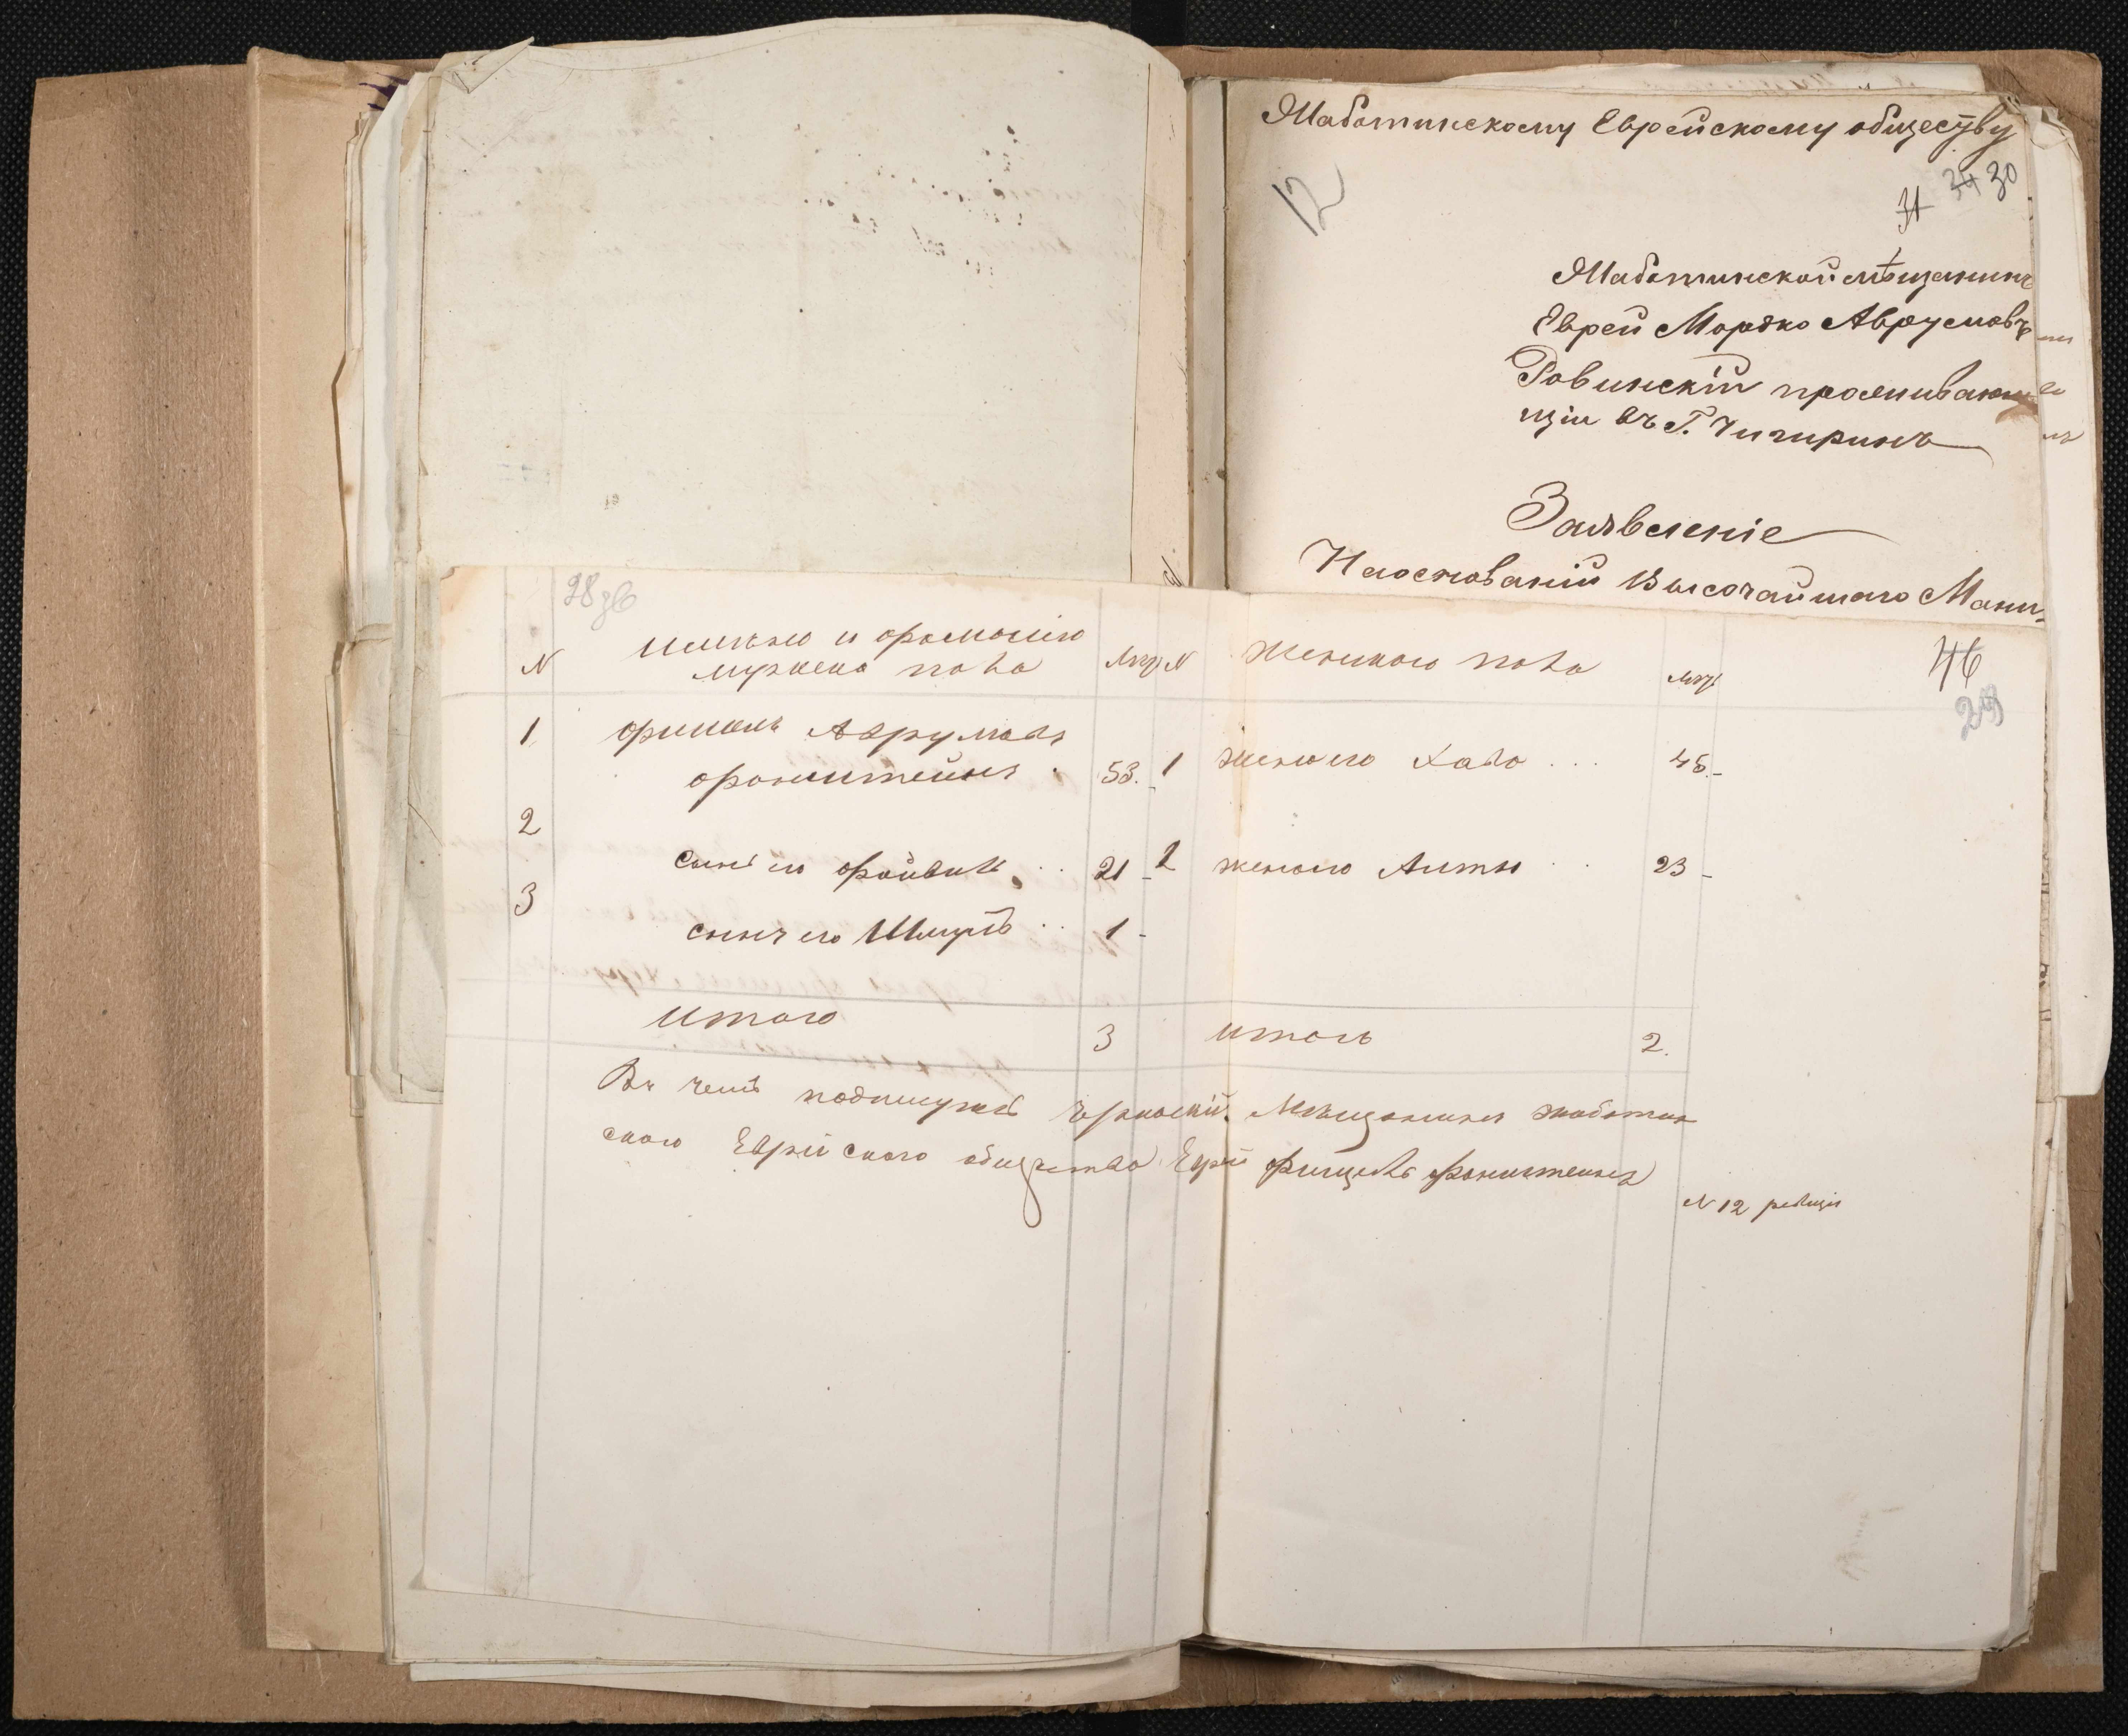 Жаботинскому Еврейскому обществу
12
31 34 30
Жаботинской мѣщанинъ
Еврей Мордко Аврумовъ
Ровинскій проживаю
щій въ Г. Чигиринѣ
Заявленіе
На основаній Высочайшаго Мани
28 зв
46
29
N имена и фамилію мужеска пола лѣт N Женскаго пола лѣт
1 Фишель Аврумовъ
Фонштейнъ . 53. 1 жена его Хава ... 45.
2
сынъ его Файвель .. 21 2 жена его Антя .. 23
3
сынъ его Шмуль .. 1
Итого 3 итого 2.
Въ чемъ подпишуюсь Мѣщанинъ жаботин
ского Еврейского общества Еврей Фишель Фонштейнъ
N 12 ревизіи